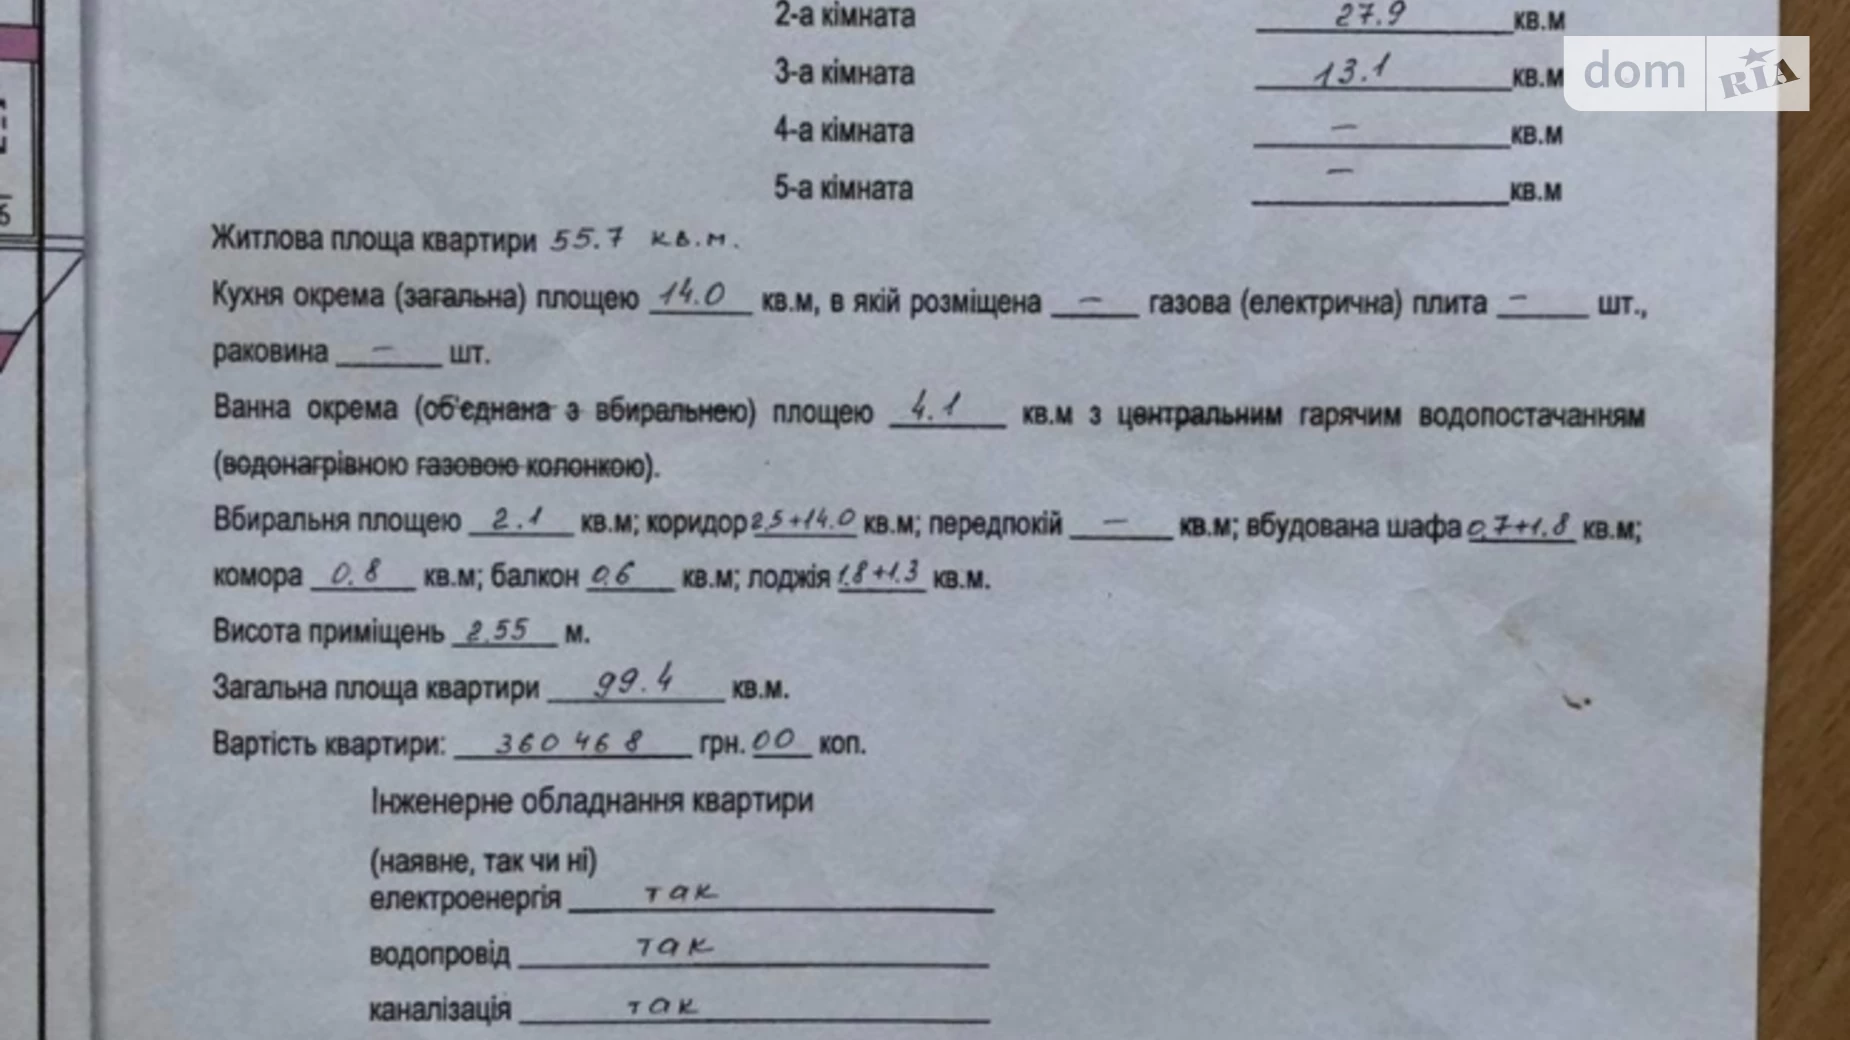 2-а кімната 27.9 кв.м
3-а кімната 13.1 кв.м
dom RIA
4-а кімната – кв.м
5-а кімната – кв.м
Житлова площа квартири 55.7 кв.м.
Кухня окрема (загальна) площею 14.0 кв.м, в якій розміщена – газова (електрична) плита – шт.,
раковина – шт.
Ванна окрема (об'єднана з вбиральнею) площею 4.1 кв.м з центральним гарячим водопостачанням
(водонагрівною газовою колонкою).
Вбиральня площею 2.1 кв.м; коридор 2.5+14.0 кв.м; передпокій – кв.м; вбудована шафа 0.7+1.8 кв.м;
комора 0.8 кв.м; балкон 0.6 кв.м; лоджія 1.8+1.3 кв.м.
Висота приміщень 2.55 м.
Загальна площа квартири 99.4 кв.м.
Вартість квартири: 360 468 грн. 00 коп.
Інженерне обладнання квартири
(наявне, так чи ні)
електроенергія так
водопровід так
каналізація так